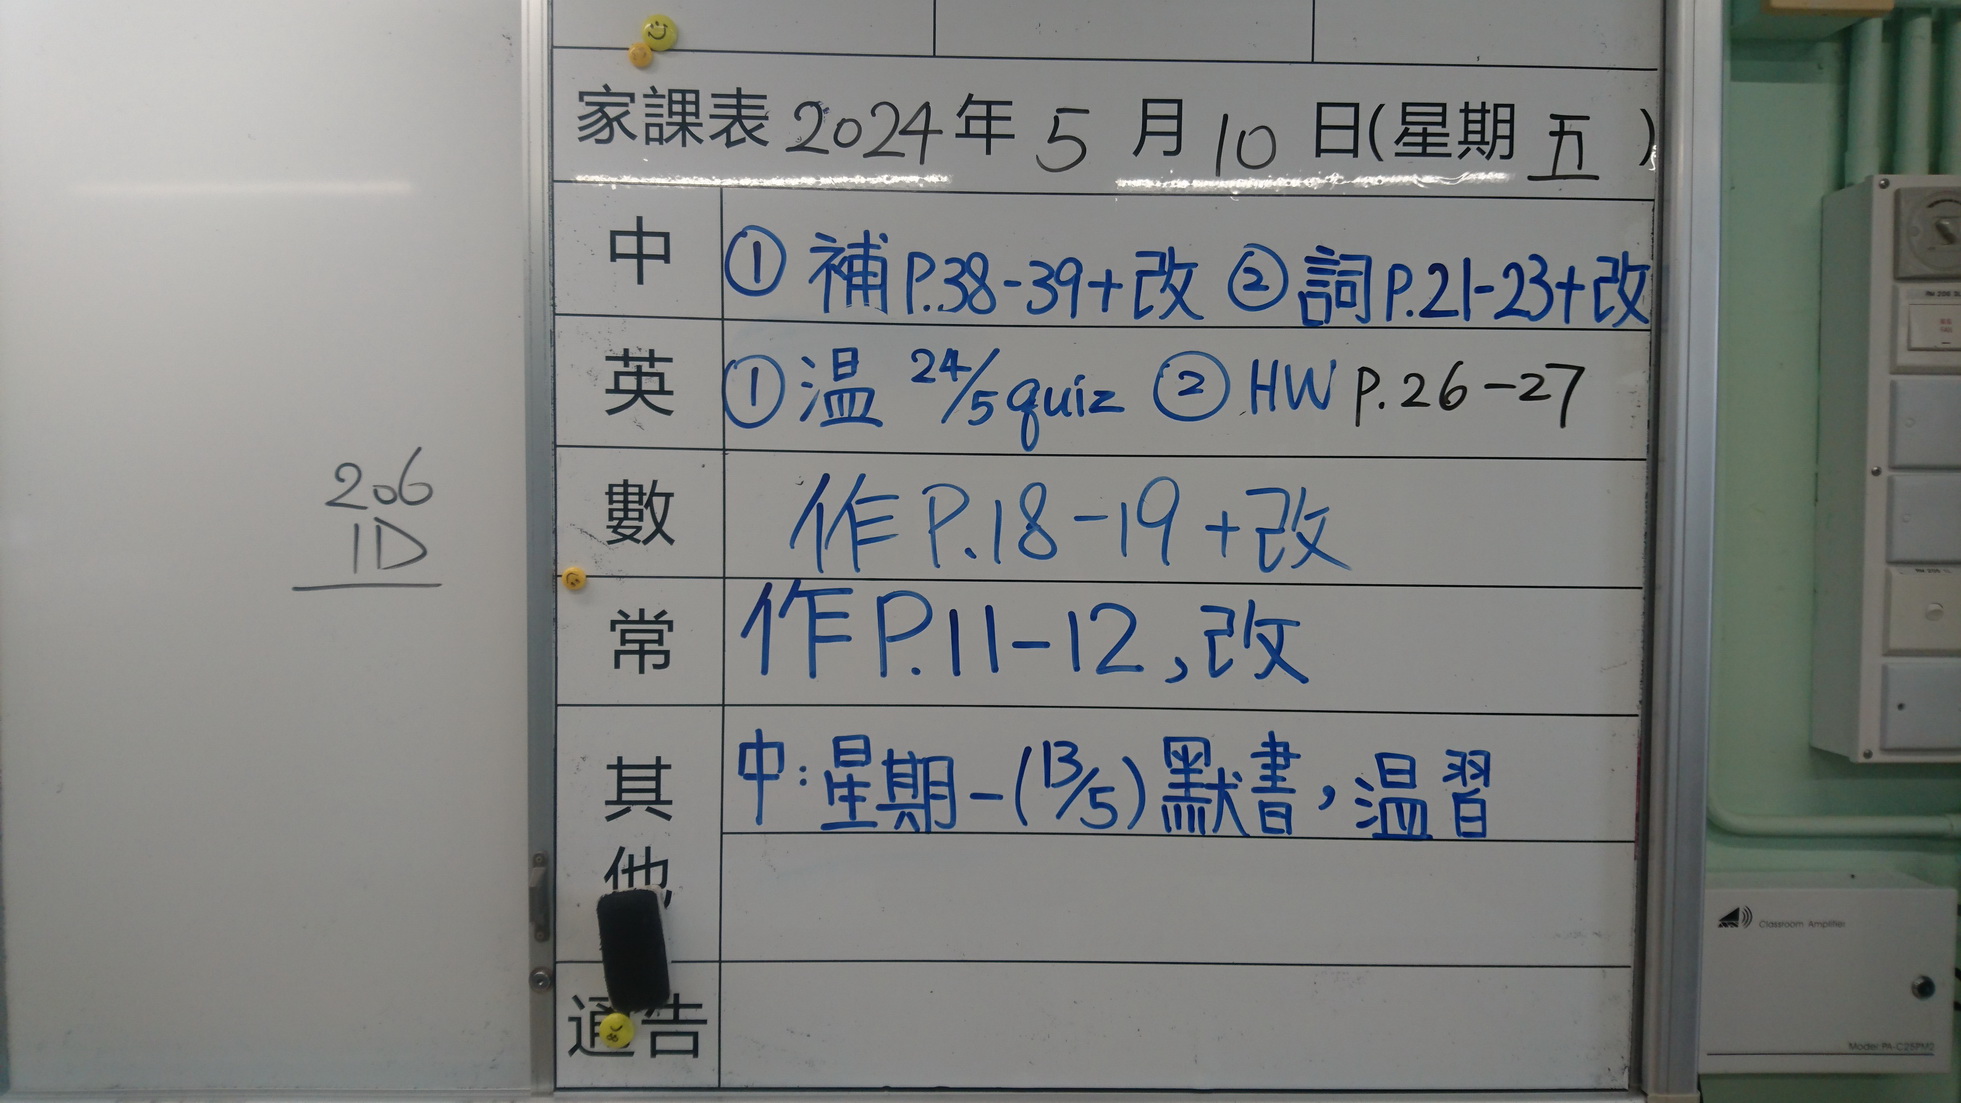 家課表 2024 年 5 月 10 日(星期 五 )
中 ① 補 P.38-39+改 ② 詞 P.21-23+改
英 ① 温 24/5 quiz ② HW P.26-27
數 作 P.18-19+改
常 作 P.11-12,改
其他 中:星期一(13/5)默書,温習
通告
206
1D
Classroom Amplifier
Model: PA-C25PM2